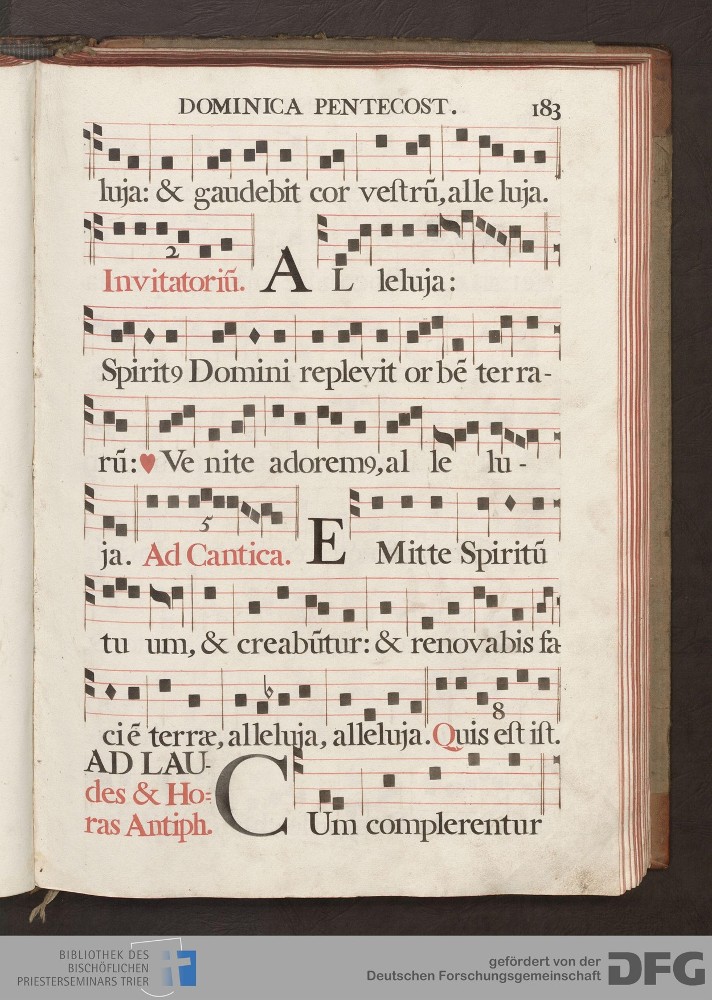 DOMINICA PENTECOST. 183
luja: & gaudebit cor veſtrũ, alle luja.
2
Invitatoriũ. A L leluja:
Spiritꝯ Domini replevit or bẽ ter ra-
rũ: ♥ Ve nite adoremꝯ, al le lu -
5
ja. Ad Cantica. E Mitte Spiritũ
tu um, & creabũtur: & renovabis fa
8
ci ẽ terræ, alleluja, alleluja. Quis eſt iſt.
AD LAU-
des & Ho=
ras Antiph. C Um complerentur
BIBLIOTHEK DES
BISCHÖFLICHEN
PRIESTERSEMINARS TRIER
gefördert von der
Deutschen Forschungsgemeinschaft DFG